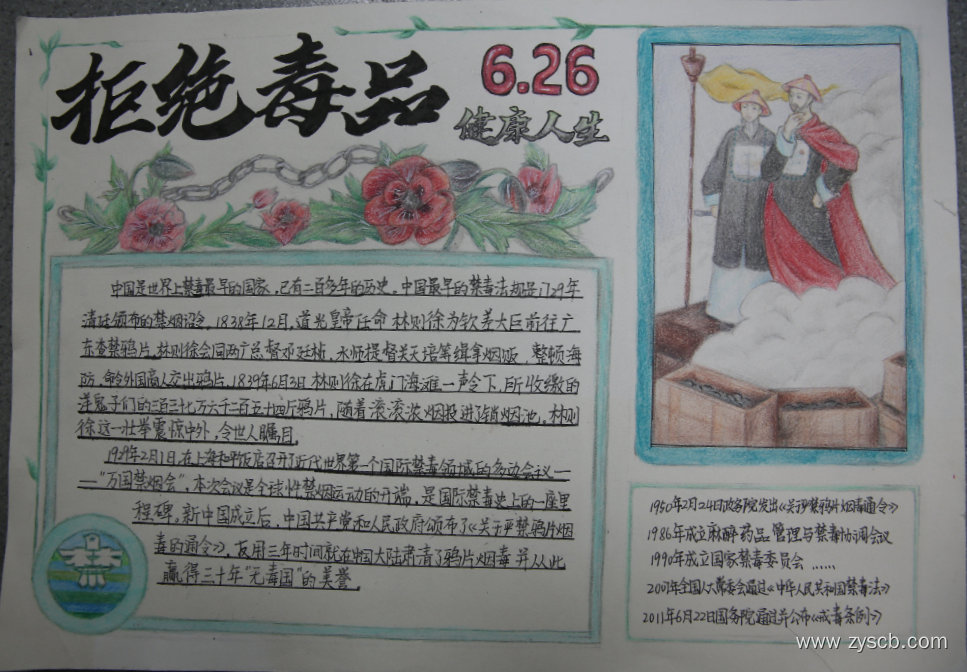 拒绝毒品
6.26
健康人生
中国是世界上禁毒最早的国家,已有二百多年的历史。中国最早的禁毒法规是1729年
清廷颁布的禁烟诏令。1838年12月,道光皇帝任命林则徐为钦差大臣前往广
东查禁鸦片。林则徐会同两广总督邓廷桢,水师提督关天培等缉拿烟贩,整顿海
防,命令外国商人交出鸦片。1839年6月3日林则徐在虎门海滩一声令下,所收缴的
洋鬼子们的二百三十七万六千二百五十四斤鸦片,随着滚滚浓烟投进了销烟池。林则
徐这一壮举震惊中外,令世人瞩目。
1929年2月1日,在上海和平饭店召开了近代世界第一个国际禁毒领域的多边会议—
—"万国禁烟会",本次会议是全球性禁烟运动的开端,是国际禁毒史上的一座里
程碑,新中国成立后,中国共产党和人民政府颁布了《关于严禁鸦片烟
毒的通令》,仅用三年时间就在中国大陆肃清了鸦片烟毒并从此
赢得三十年"无毒国"的美誉。
1950年2月24日政务院发出《关于严禁鸦片烟毒通令》
1986年成立麻醉药品管理与禁毒协调会议
1990年成立国家禁毒委员会 ……
2007年全国人大常委会通过《中华人民共和国禁毒法》
2011年6月22日国务院通过并公布《戒毒条例》
www.zyscb.com